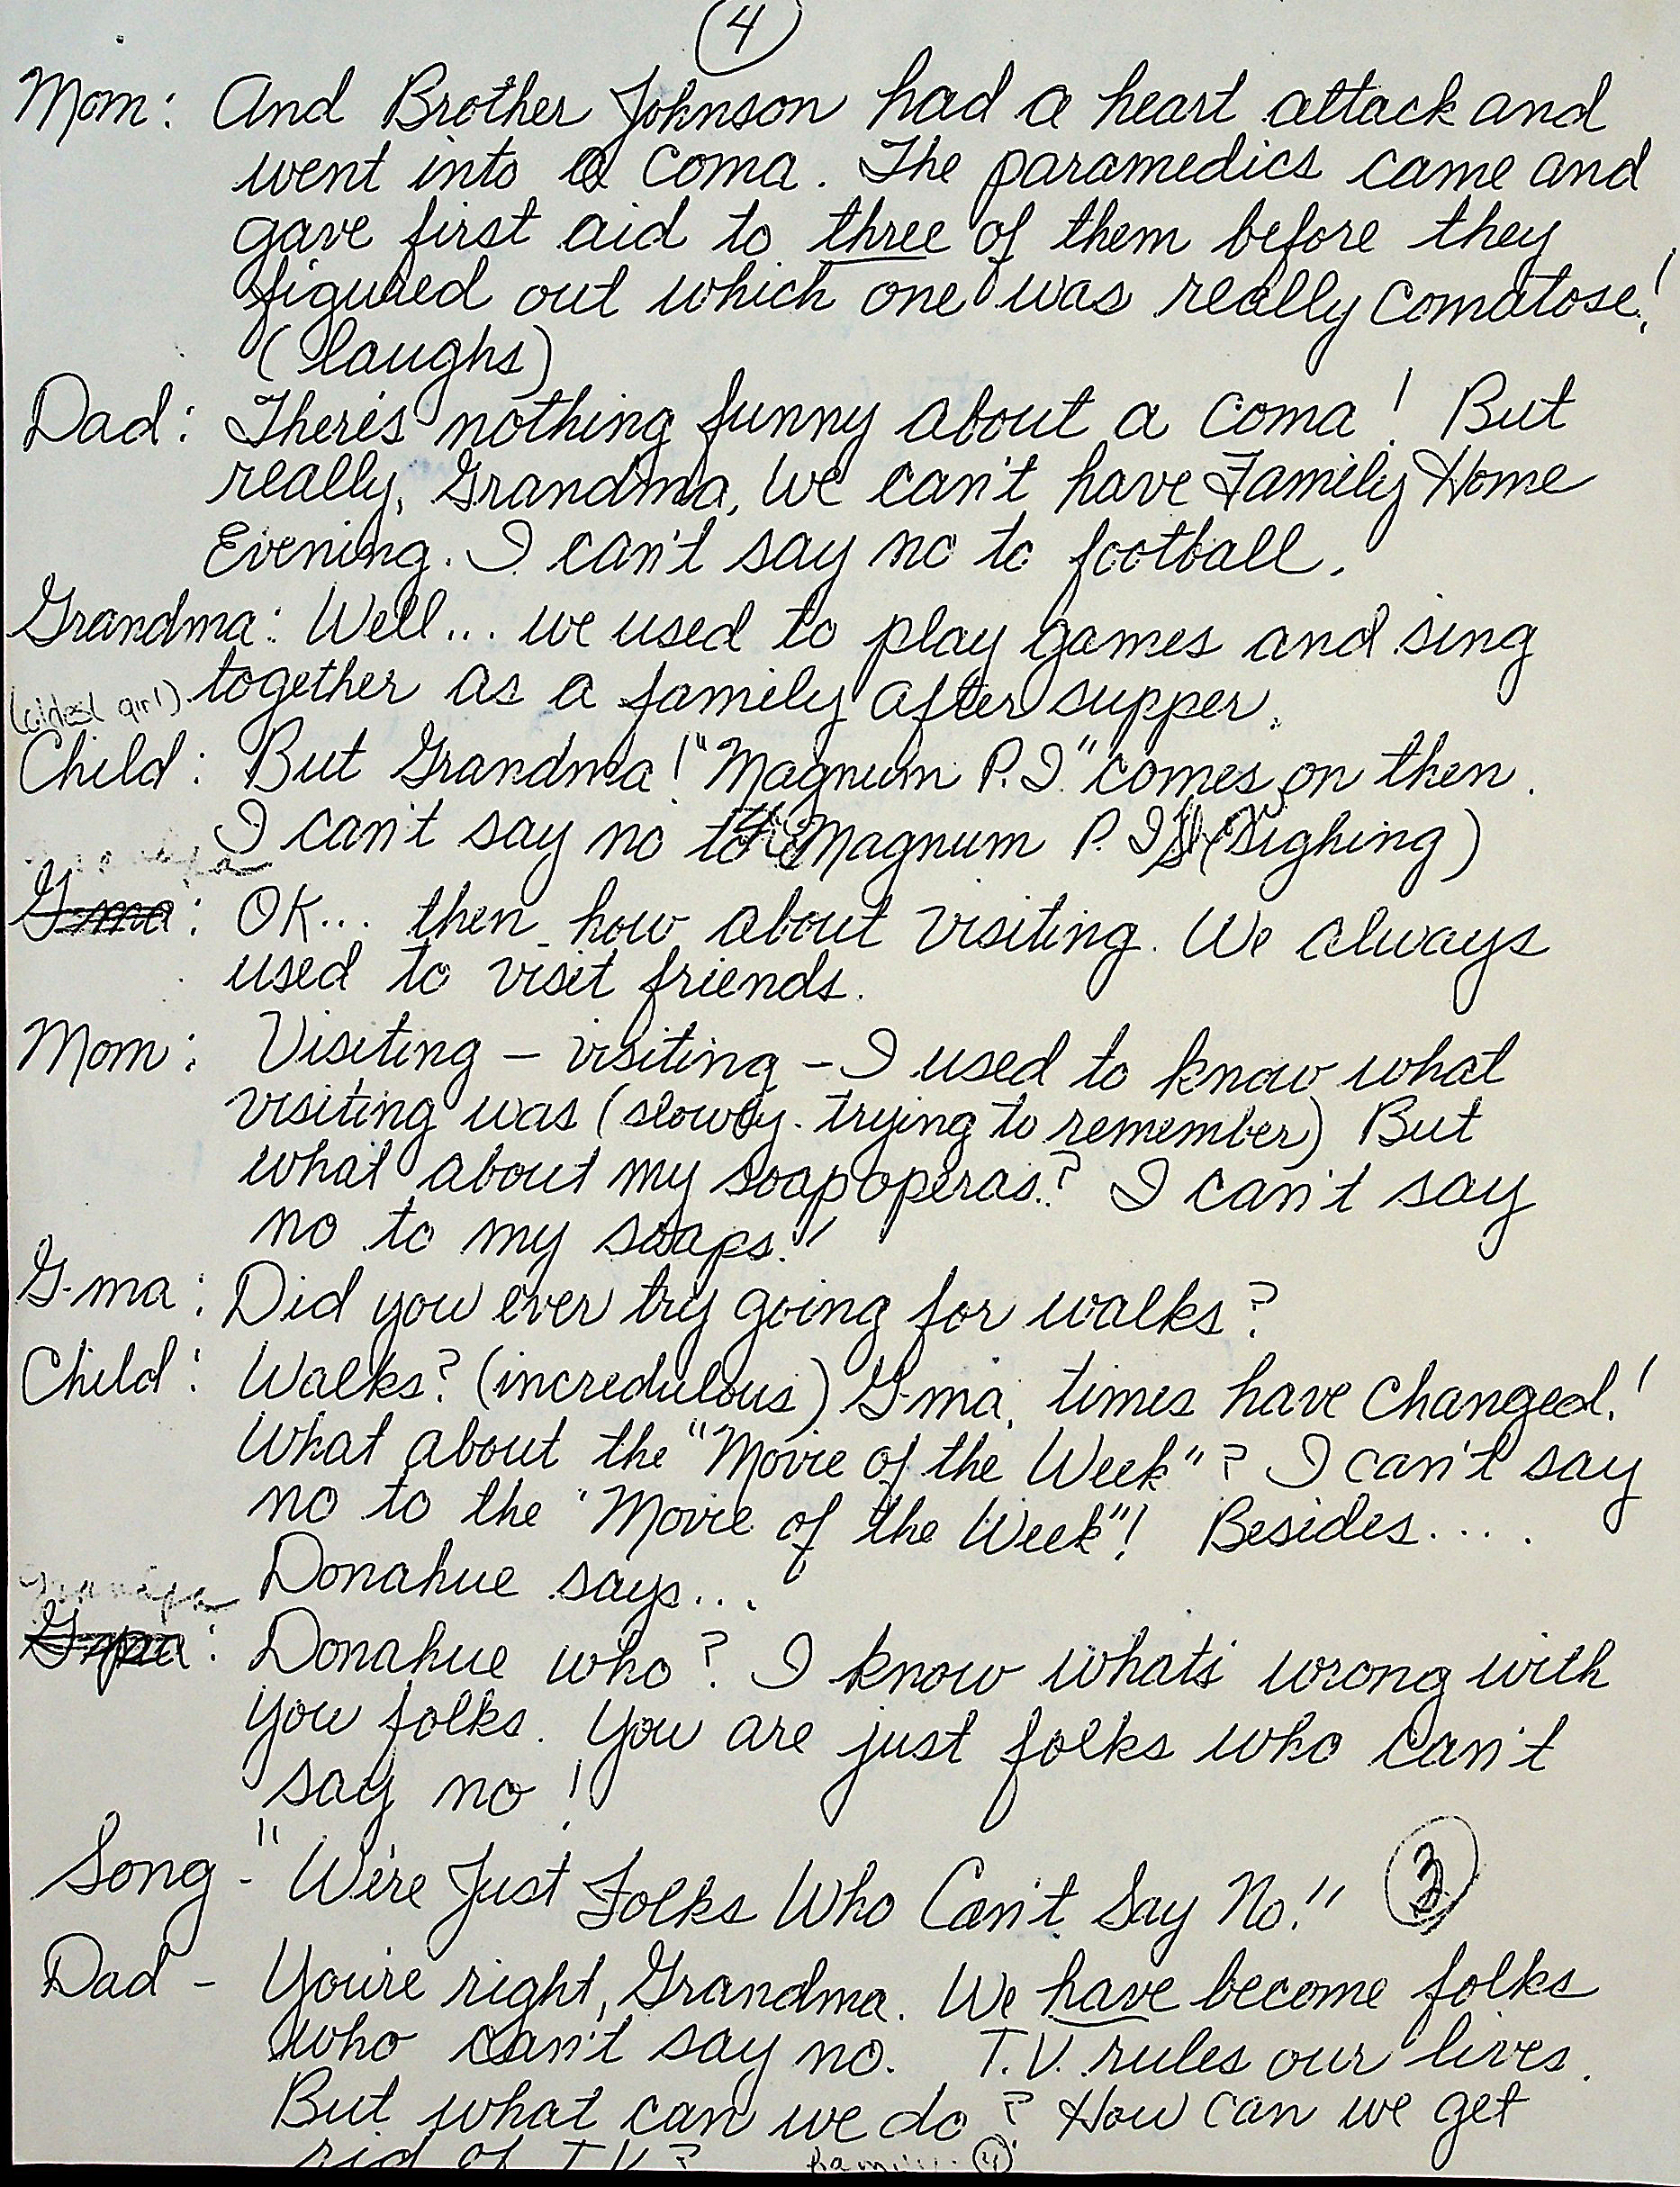 4
Mom: And Brother Johnson had a heart attack and
went into a coma. The paramedics came and
gave first aid to three of them before they
figured out which one was really comatose!
(laughs)
Dad: There's nothing funny about a coma! But
really, Grandma, we can't have Family Home
Evening. I can't say no to football.
Grandma: Well... we used to play games and sing
(oldest girl) together as a family after supper.
Child: But Grandma! "Magnum P.I." comes on then.
I can't say no to Magnum P.I. (Sighing)
Grandpa
G-ma: OK... then how about visiting. We always
used to visit friends.
Mom: Visiting - visiting - I used to know what
visiting was (slowly - trying to remember) But
what about my soap operas? I can't say
no to my soaps!
G-ma: Did you ever try going for walks?
Child: Walks? (incredulous) G-ma, times have changed!
What about the "Movie of the Week"? I can't say
no to the "Movie of the Week"! Besides....
Donahue says...
Grandpa
G-pa: Donahue who? I know what's wrong with
you folks. You are just folks who can't
say no!
Song - "We're Just Folks Who Can't Say No!" 3
Dad - You're right, Grandma. We have become folks
who can't say no. T.V. rules our lives.
But what can we do? How can we get
rid of T.V.?